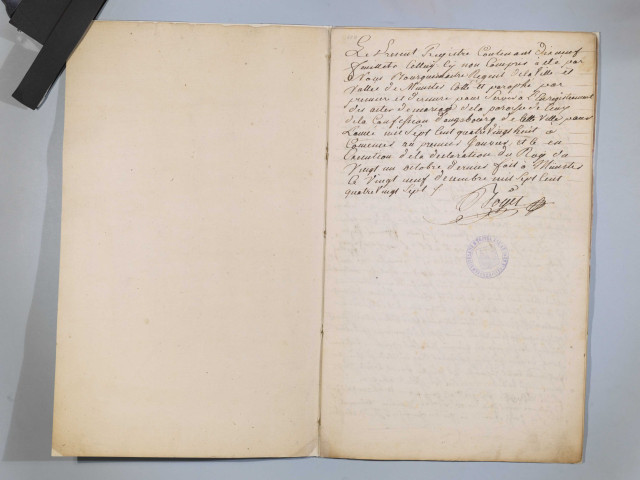 Le Present Registre Contenant dix neuf
feuillets Celluy cy non Compris a été par
Nous Bourguemaitre Regent de la Ville et
Vallée de Munster Cotté et paraphé par
premier et dernier pour Servir a L'Enregistrement
des actes de mariage de la paroisse de Ceux
de la Confession d'augsbourg de Cette Ville, pour
L'année mil Sept Cent quatre vingt huit a
Comencer au premier Janvier et ce en
Execution de la declaration du Roy du
Vingt un octobre dernier fait à Munster
Le Vingt neuf decembre mil Sept Cent
quatre vingt Sept